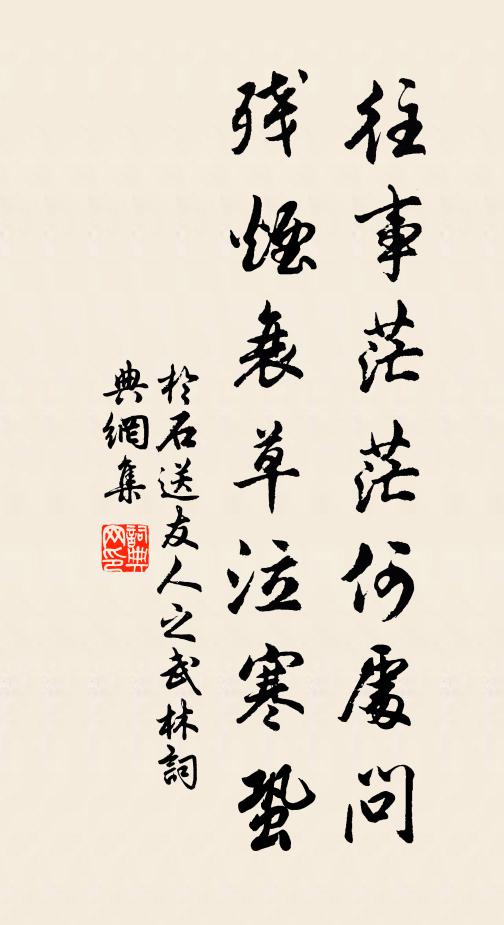 往事茫茫何處問
殘煙衰草泣寒蛩
於石送友人之武林詞
典網集
詞典
網印